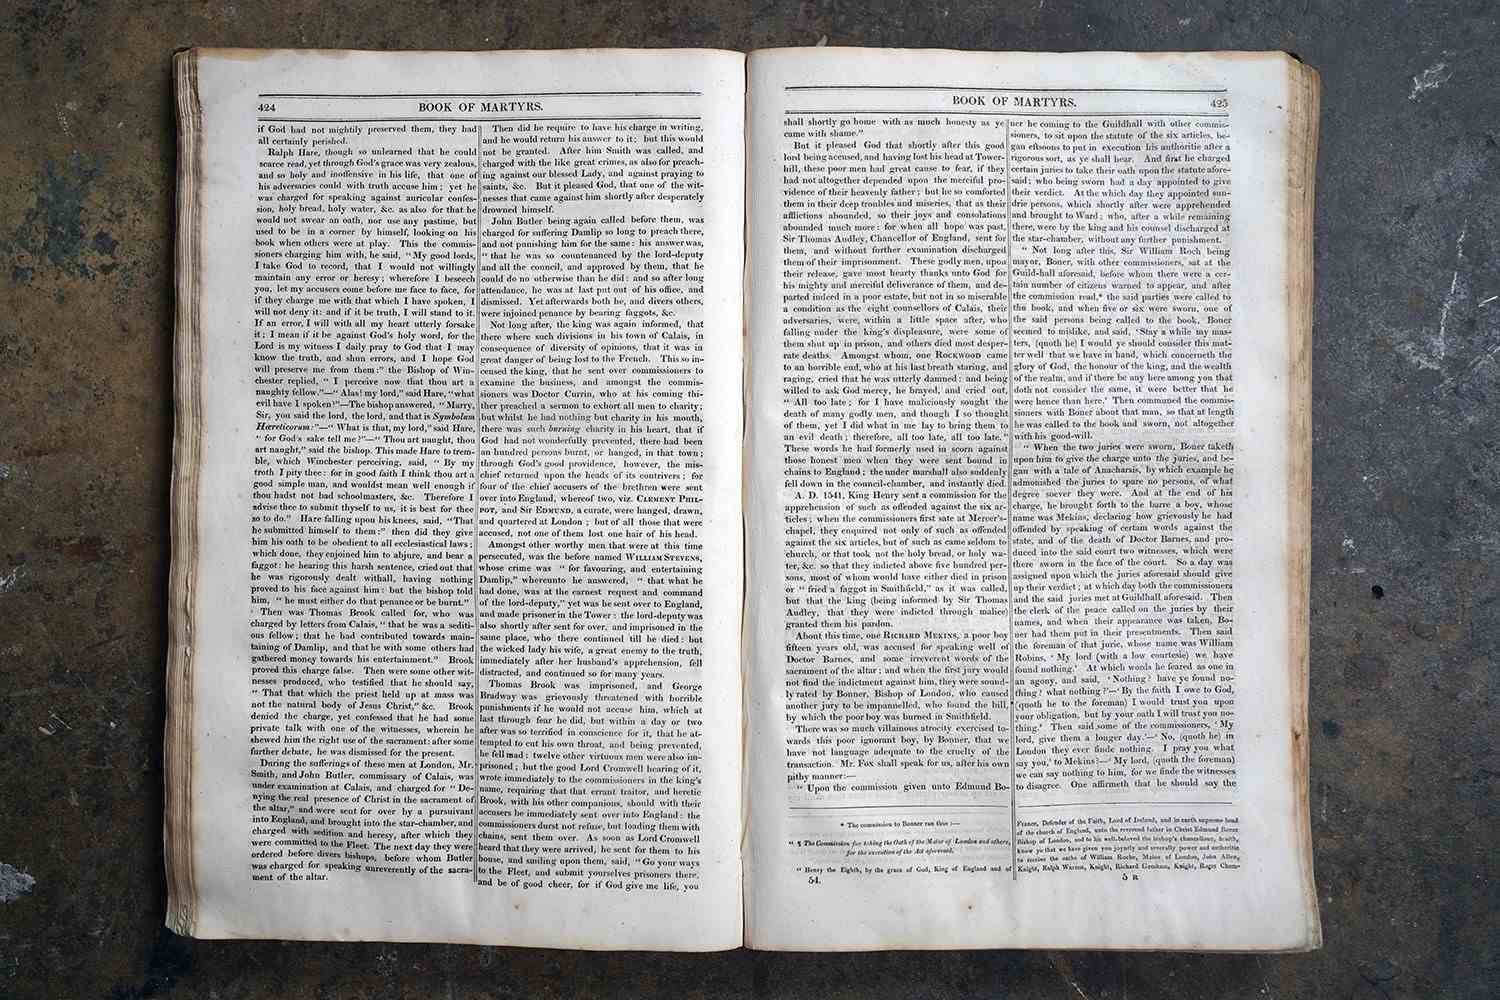 424
BOOK OF MARTYRS.
if God had not mightily preserved them, they had
all certainly perished.
Ralph Hare, though so unlearned that he could
scarce read, yet through God's grace was very zealous,
and so holy and inoffensive in his life, that one of
his adversaries could with truth accuse him; yet he
was charged for speaking against auricular confes-
sion, holy bread, holy water, &c. as also for that he
would not swear an oath, nor use any pastime, but
used to be in a corner by himself, looking on his
book when others were at play. This the commis-
sioners charging him with, he said, "My good lords,
I take God to record, that I would not willingly
maintain any error or heresy; wherefore I beseech
you, let my accusers come before me face to face, for
if they charge me with that which I have spoken, I
will not deny it: and if it be truth, I will stand to it.
If an error, I will with all my heart utterly forsake
it: I mean if it be against God's holy word, for the
Lord is my witness I daily pray to God that I may
know the truth, and shun errors, and I hope God
will preserve me from them:" the Bishop of Win-
chester replied, "I perceive now that thou art a
naughty fellow."—"Alas! my lord," said Hare, "what
evil have I spoken?"—The bishop answered, "Marry,
Sir, you said the lord, the lord, and that is Symbolum
Hæreticorum:"—"What is that, my lord," said Hare,
"for God's sake tell me?"—"Thou art naught, thou
art naught," said the bishop. This made Hare to trem-
ble, which Winchester perceiving, said, "By my
troth I pity thee: for in good faith I think thou art a
good simple man, and wouldst mean well enough if
thou hadst not bad schoolmasters, &c. Therefore I
advise thee to submit thyself to us, it is best for thee
so to do." Hare falling upon his knees, said, "That
he submitted himself to them:" then did they give
him his oath to be obedient to all ecclesiastical laws;
which done, they enjoined him to abjure, and bear a
faggot: he hearing this harsh sentence, cried out that
he was rigorously dealt withall, having nothing
proved to his face against him: but the bishop told
him, "he must either do that penance or be burnt."
Then was Thomas Brook called for, who was
charged by letters from Calais, "that he was a sediti-
ous fellow; that he had contributed towards main-
taining of Damlip, and that he with some others had
gathered money towards his entertainment." Brook
proved this charge false. Then were some other wit-
nesses produced, who testified that he should say,
"That that which the priest held up at mass was
not the natural body of Jesus Christ," &c. Brook
denied the charge, yet confessed that he had some
private talk with one of the witnesses, wherein he
shewed him the right use of the sacrament: after some
further debate, he was dismissed for the present.
During the sufferings of these men at London, Mr.
Smith, and John Butler, commissary of Calais, was
under examination at Calais, and charged for "De-
nying the real presence of Christ in the sacrament of
the altar," and were sent for by a pursuivant
into England, and brought into the star-chamber, and
charged with sedition and heresy, after which they
were committed to the Fleet. The next day they were
ordered before divers bishops, before whom Butler
was charged for speaking unreverently of the sacra-
ment of the altar.
Then did he require to have his charge in writing,
and he would return his answer to it; but this would
not be granted. After him Smith was called, and
charged with the like great crimes, as also for preach-
ing against our blessed Lady, and against praying to
saints, &c. But it pleased God, that one of the wit-
nesses that came against him shortly after desperately
drowned himself.
John Butler being again called before them, was
charged for suffering Damlip so long to preach there,
and not punishing him for the same: his answer was,
"that he was so countenanced by the lord-deputy
and all the council, and approved by them, that he
could do no otherwise than he did: and so after long
attendance, he was at last put out of his office, and
dismissed. Yet afterwards both he, and divers others,
were injoined penance by bearing faggots, &c.
Not long after, the king was again informed, that
there where such divisions in his town of Calais, in
consequence of diversity of opinions, that it was in
great danger of being lost to the French. This so in-
censed the king, that he sent over commissioners to
examine the business, and amongst the commis-
sioners was Doctor Currin, who at his coming thi-
ther preached a sermon to exhort all men to charity;
but whilst he had nothing but charity in his mouth,
there was such burning charity in his heart, that if
God had not wonderfully prevented, there had been
an hundred persons burnt, or hanged, in that town;
through God's good providence, however, the mis-
chief returned upon the heads of its contrivers; for
four of the chief accusers of the brethren were sent
over into England, whereof two, viz. CLEMENT PHIL-
POT, and Sir EDMUND, a curate, were hanged, drawn,
and quartered at London; but of all those that were
accused, not one of them lost one hair of his head.
Amongst other worthy men that were at this time
persecuted, was the before named WILLIAM STEVENS,
whose crime was "for favouring, and entertaining
Damlip," whereunto he answered, "that what he
had done, was at the earnest request and command
of the lord-deputy," yet was he sent over to England,
and made prisoner in the Tower: the lord-deputy was
also shortly after sent for over, and imprisoned in the
same place, who there continued till he died: but
the wicked lady his wife, a great enemy to the truth,
immediately after her husband's apprehension, fell
distracted, and continued so for many years.
Thomas Brook was imprisoned, and George
Bradway was grievously threatened with horrible
punishments if he would not accuse him, which at
last through fear he did, but within a day or two
after was so terrified in conscience for it, that he at-
tempted to cut his own throat, and being prevented,
he fell mad: twelve other virtuous men were also im-
prisoned; but the good Lord Cromwell hearing of it,
wrote immediately to the commissioners in the king's
name, requiring that that errant traitor, and heretic
Brook, with his other companions, should with their
accusers be immediately sent over into England: the
commissioners durst not refuse, but loading them with
chains, sent them over. As soon as Lord Cromwell
heard that they were arrived, he sent for them to his
house, and smiling upon them, said, "Go your ways
to the Fleet, and submit yourselves prisoners there,
and be of good cheer, for if God give me life, you
BOOK OF MARTYRS.
425
shall shortly go home with as much honesty as ye
came with shame."
But it pleased God that shortly after this good
lord being accused, and having lost his head at Tower-
hill, these poor men had great cause to fear, if they
had not altogether depended upon the merciful pro-
vidence of their heavenly father; but he so comforted
them in their deep troubles and miseries, that as their
afflictions abounded, so their joys and consolations
abounded much more: for when all hope was past,
Sir Thomas Audley, Chancellor of England, sent for
them, and without further examination discharged
them of their imprisonment. These godly men, upon
their release, gave most hearty thanks unto God for
his mighty and merciful deliverance of them, and de-
parted indeed in a poor estate, but not in so miserable
a condition as the eight counsellors of Calais, their
adversaries, were, within a little space after, who
falling under the king's displeasure, were some of
them shut up in prison, and others died most desper-
rate deaths. Amongst whom, one ROCKWOOD came
to an horrible end, who at his last breath staring, and
raging, cried that he was utterly damned: and being
willed to ask God mercy, he brayed, and cried out,
"All too late; for I have maliciously sought the
death of many godly men, and though I so thought
of them, yet I did what in me lay to bring them to
an evil death; therefore, all too late, all too late."
These words he had formerly used in scorn against
those honest men when they were sent bound in
chains to England; the under marshall also suddenly
fell down in the council-chamber, and instantly died.
A. D. 1541, King Henry sent a commission for the
apprehension of such as offended against the six ar-
ticles; when the commissioners first sate at Mercer's-
chapel, they enquired not only of such as offended
against the six articles, but of such as came seldom to
church, or that took not the holy bread, or holy wa-
ter, &c. so that they indicted above five hundred per-
sons, most of whom would have either died in prison
or "fried a faggot in Smithfield," as it was called,
but that the king (being informed by Sir Thomas
Audley, that they were indicted through malice)
granted them his pardon.
About this time, one RICHARD MEKINS, a poor boy
fifteen years old, was accused for speaking well of
Doctor Barnes, and some irreverent words of the
sacrament of the altar; and when the first jury would
not find the indictment against him, they were sound-
ly rated by Bonner, Bishop of London, who caused
another jury to be impannelled, who found the bill,
by which the poor boy was burned in Smithfield.
There was so much villainous atrocity exercised to-
wards this poor ignorant boy, by Bonner, that we
have not language adequate to the cruelty of the
transaction. Mr. Fox shall speak for us, after his own
pithy manner:—
"Upon the commission given unto Edmund Bo-
ner he coming to the Guildhall with other commis-
sioners, to sit upon the statute of the six articles, be-
gan eftsoons to put in execution his authoritie after a
rigorous sort, as ye shall hear. And first he charged
certain juries to take their oath upon the statute afore-
said; who being sworn had a day appointed to give
their verdict. At the which day they appointed sun-
drie persons, which shortly after were apprehended
and brought to Ward; who, after a while remaining
there, were by the king and his counsel discharged at
the star-chamber, without any further punishment.
"Not long after this, Sir William Roch being
mayor, Boner, with other commissioners, sat at the
Guild-hall aforesaid, before whom there were a cer-
tain number of citizens warned to appear, and after
the commission read,* the said parties were called to
the book, and when five or six were sworn, one of
the said persons being called to the book, Boner
seemed to mislike, and said, 'Stay a while my mas-
ters, (quoth he) I would ye should consider this mat-
ter well that we have in hand, which concerneth the
glory of God, the honour of the king, and the wealth
of the realm, and if there be any here among you that
doth not consider the same, it were better that he
were hence than here.' Then communed the commis-
sioners with Boner about that man, so that at length
he was called to the book and sworn, not altogether
with his good-will.
"When the two juries were sworn, Boner taketh
upon him to give the charge unto the juries, and be-
gan with a tale of Anacharsis, by which example he
admonished the juries to spare no persons, of what
degree soever they were. And at the end of his
charge, he brought forth to the barre a boy, whose
name was Mekins, declaring how grievously he had
offended by speaking of certain words against the
state, and of the death of Doctor Barnes, and pro-
duced into the said court two witnesses, which were
there sworn in the face of the court. So a day was
assigned upon which the juries aforesaid should give
up their verdict; at which day both the commissioners
and the said juries met at Guildhall aforesaid. Then
the clerk of the peace called on the juries by their
names, and when their appearance was taken, Bo-
ner had them put in their presentments. Then said
the foreman of that jurie, whose name was William
Robins, 'My lord (with a low courtesie) we have
found nothing.' At which words he feared as one in
an agony, and said, 'Nothing? have ye found no-
thing? what nothing?'—'By the faith I owe to God,
(quoth he to the foreman) I would trust you upon
your obligation, but by your oath I will trust you no-
thing.' Then said some of the commissioners, 'My
lord, give them a longer day.'—'No, (quoth he) in
London they ever finde nothing. I pray you what
say you,' to Mekins?—'My lord, (quoth the foreman)
we can say nothing to him, for we finde the witnesses
to disagree. One affirmeth that he should say the
* The commission to Bonner ran thus:—
"¶ The Commission for taking the Oath of the Maior of London and others,
for the execution of the Act aforesaid.
"Henry the Eighth, by the grace of God, King of England and of
54.
France, Defender of the Faith, Lord of Ireland, and in earth supreme head
of the church of England, unto the reverend father in Christ Edmund Boner
Bishop of London, and to his well beloved the bishop's chancellour, health,
know ye that we have given you joyntly and severally power and authoritie
to receive the oaths of William Roche, Maior of London, John Allen,
Knight, Ralph Warren, Knight, Richard Gresham, Knight, Roger Chom-
5 R